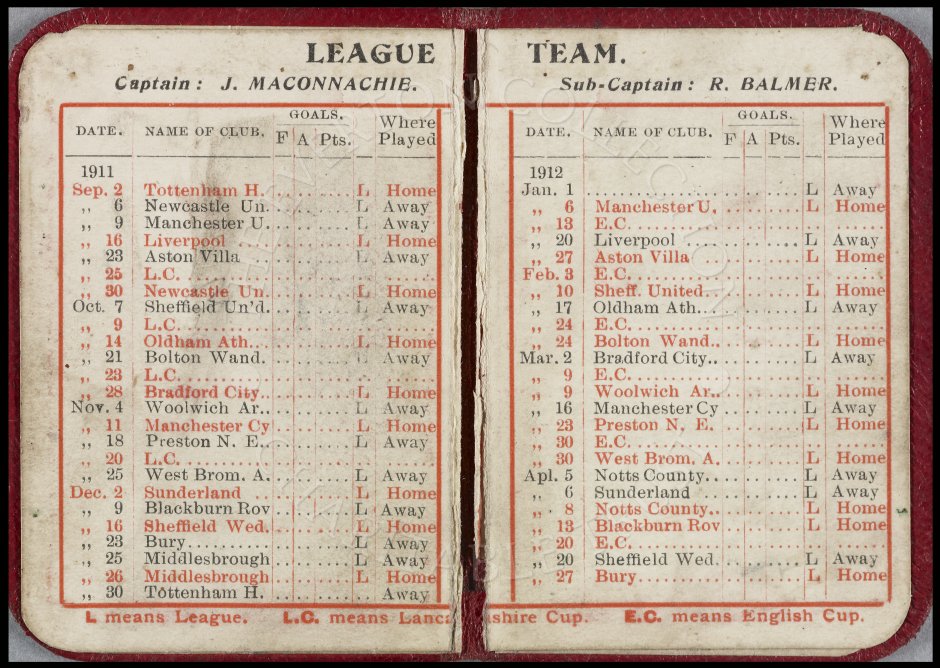 LEAGUE TEAM.
Captain: J. MACONNACHIE.
DATE. NAME OF CLUB. GOALS. F A Pts. Where Played
1911
Sep. 2 Tottenham H. L Home
„ 6 Newcastle Un. L Away
„ 9 Manchester U. L Away
„ 16 Liverpool L Home
„ 23 Aston Villa L Away
„ 25 L.C.
„ 30 Newcastle Un. L Home
Oct. 7 Sheffield Un'd. L Away
„ 9 L.C.
„ 14 Oldham Ath. L Home
„ 21 Bolton Wand. L Away
„ 23 L.C.
„ 28 Bradford City. L Home
Nov. 4 Woolwich Ar. L Away
„ 11 Manchester Cy L Home
„ 18 Preston N. E. L Away
„ 20 L.C.
„ 25 West Brom. A. L Away
Dec. 2 Sunderland L Home
„ 9 Blackburn Rov L Away
„ 16 Sheffield Wed. L Home
„ 23 Bury L Away
„ 25 Middlesbrough L Away
„ 26 Middlesbrough L Home
„ 30 Tottenham H. Away
Sub-Captain: R. BALMER.
DATE. NAME OF CLUB. GOALS. F A Pts. Where Played
1912
Jan. 1 L Away
„ 6 Manchester U. L Home
„ 13 E.C.
„ 20 Liverpool L Away
„ 27 Aston Villa L Home
Feb. 3 E.C.
„ 10 Sheff. United. L Home
„ 17 Oldham Ath. L Away
„ 24 E.C.
„ 24 Bolton Wand. L Home
Mar. 2 Bradford City. L Away
„ 9 E.C.
„ 9 Woolwich Ar. L Home
„ 16 Manchester Cy L Away
„ 23 Preston N, E. L Home
„ 30 E.C.
„ 30 West Brom. A. L Home
Apl. 5 Notts County. L Away
„ 6 Sunderland L Away
„ 8 Notts County. L Home
„ 13 Blackburn Rov L Home
„ 20 E.C.
„ 20 Sheffield Wed. L Away
„ 27 Bury L Home
L means League. L.C. means Lancashire Cup. E.C. means English Cup.